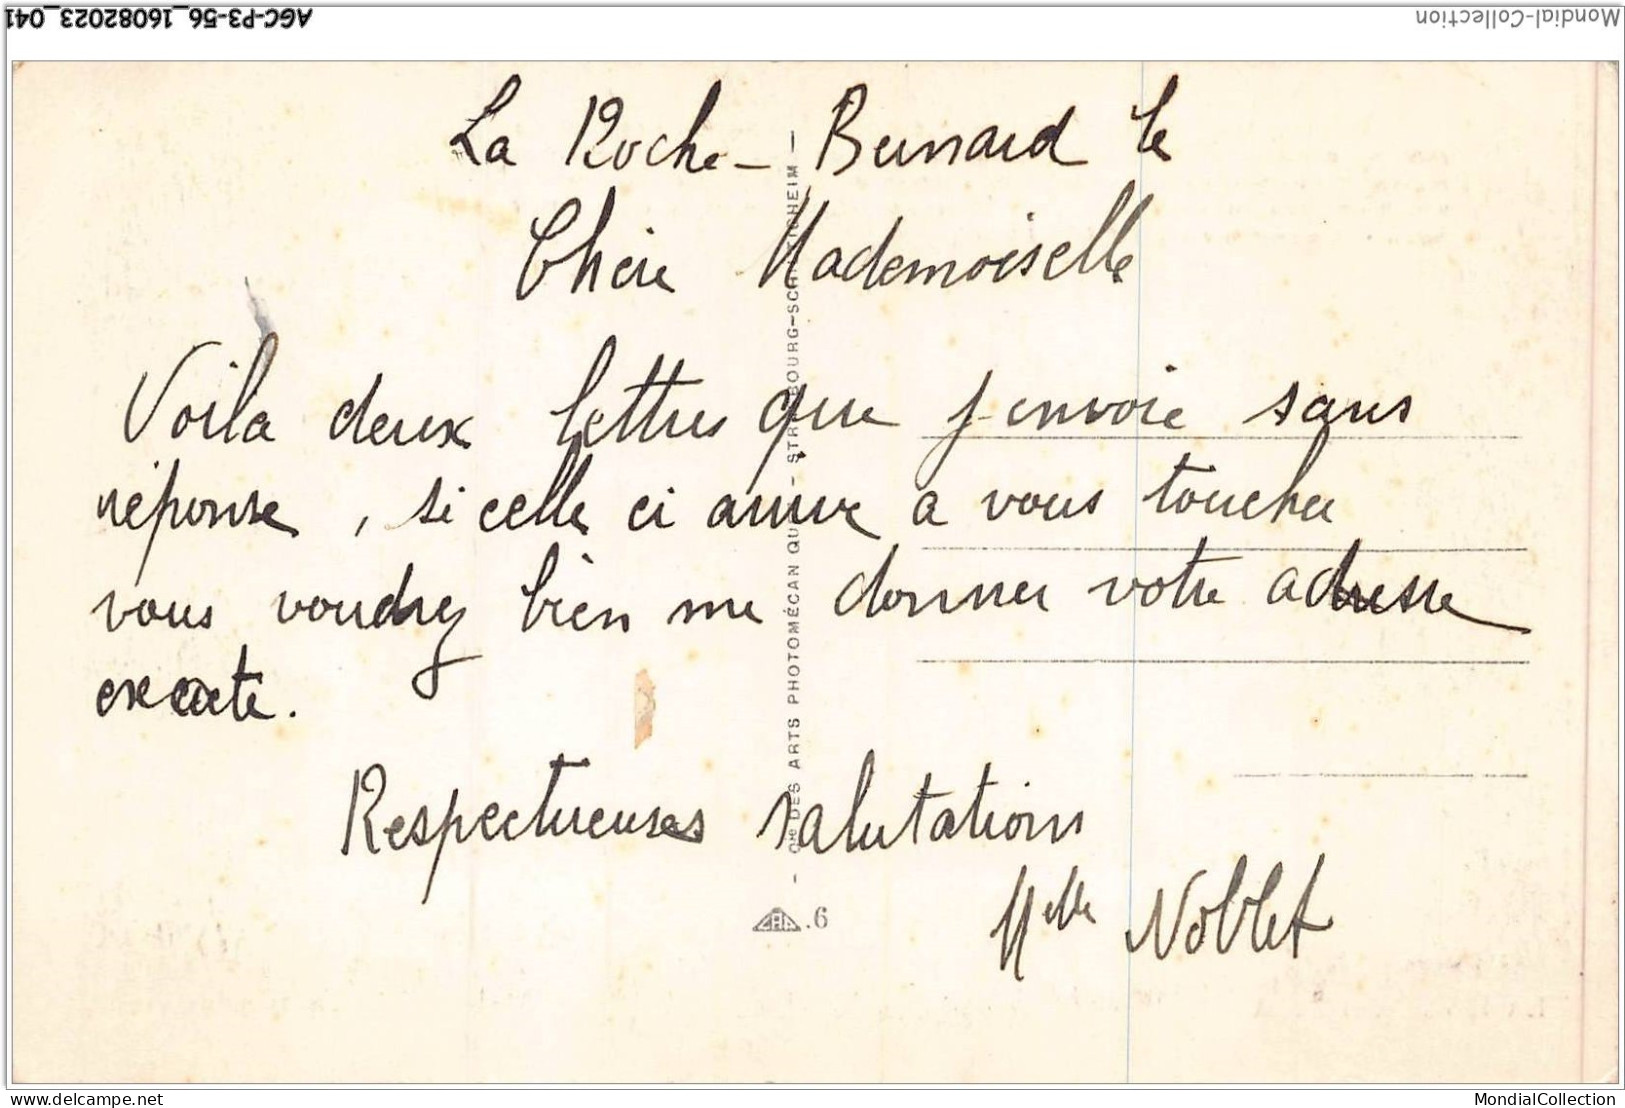 AGC-P3-56_16082023_041
Mondial-Collection
La Roche - Bernard le
Chère Mademoiselle
Voila deux lettres que j-envoie sans
réponse, si celle ci arrive a vous toucher
vous voudrez bien me donner votre adresse
exacte.
Respectueuses salutations
Melle Noblet
Cie DES ARTS PHOTOMÉCANIQUES - STRASBOURG-SCHILTIGHEIM -
CAP .6
www.delcampe.net
MondialCollection